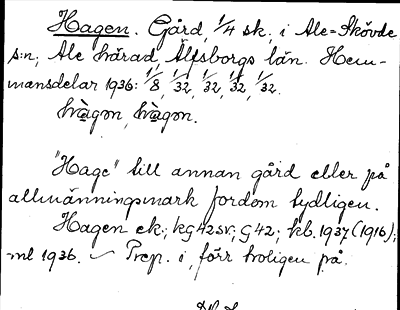 Hagen. Gård, 1/4 sk. i Ale-Skövde
s:n, Ale härad, Älfsborgs län. Hem-
mansdelar 1936: 1/8, 1/32, 1/32, 1/32, 1/32.
hàgən, hàgən.
"Hage" till annan gård eller på
allmänningsmark fordom tydligen.
Hagen ek; kg 42 sv; G 42; kb. 1937 (1916);
ml 1936. Prep. i, förr troligen på.